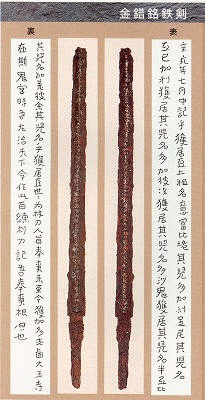 金錯銘鉄剣
表
辛亥年七月中記乎獲居臣上祖名意富比垝其児多加利足尼其児名
弖已加利獲居其児名多加披次獲居其児名多沙鬼獲居其児名半弖比
裏
其児名加差披余其児名乎獲居臣世々為杖刀人首奉事来至今獲加多支鹵大王寺
在斯鬼宮時吾左治天下令作此百練利刀記吾奉事根原也